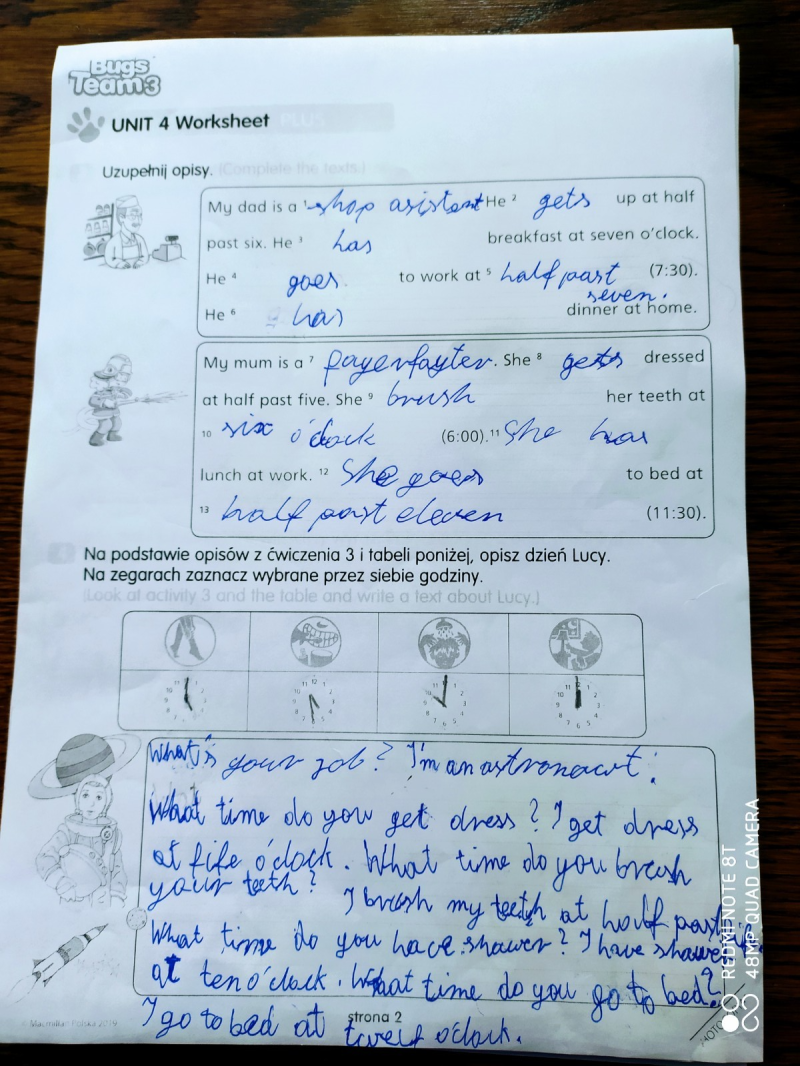 Bugs
Team 3
UNIT 4 Worksheet PLUS
Uzupełnij opisy. (Complete the texts.)
My dad is a 1 shop asistant He 2 gets up at half
past six. He 3 has breakfast at seven o'clock.
He 4 goes to work at 5 half past (7:30).
seven.
He 6 has dinner at home.
My mum is a 7 fayerfayter. She 8 gets dressed
at half past five. She 9 brush her teeth at
10 six o'clock (6:00). 11 She has
lunch at work. 12 She goes to bed at
13 half past eleven (11:30).
Na podstawie opisów z ćwiczenia 3 i tabeli poniżej, opisz dzień Lucy.
Na zegarach zaznacz wybrane przez siebie godziny.
(Look at activity 3 and the table and write a text about Lucy.)
What's your job? I'm an astronaut.
What time do you get dress? I get dress
at fife o'clock. What time do you brush
your teeth? I brush my teeth at half past
What time do you have shawer? I have shawer
at ten o'clock. What time do you go to bed?
I go to bed at twelf o'clock.
© Macmillan Polska 2019
strona 2
PHOTO
REDMI NOTE 8T
48MP QUAD CAMERA